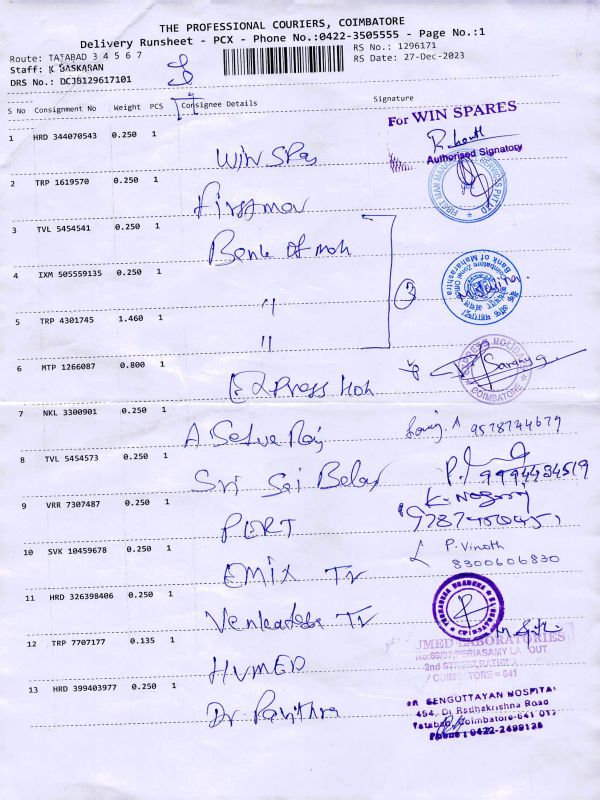 THE PROFESSIONAL COURIERS, COIMBATORE
Delivery Runsheet - PCX - Phone No.:0422-3505555 - Page No.:1
Route: TATABAD 3 4 5 6 7
RS No.: 1296171
Staff: K BASKARAN
RS Date: 27-Dec-2023
DRS No.: DCJB129617101
S No Consignment No Weight PCS Consignee Details Signature
For WIN SPARES
1 HRD 344070543 0.250 1 Win Spas
Authorised Signatory
2 TRP 1619570 0.250 1 Firstman
3 TVL 5454541 0.250 1 Bank of mah
4 IXM 505559135 0.250 1 "
Bank of Maharashtra
Coimbatore Zonal Office
3
5 TRP 4301745 1.460 1 "
6 MTP 1266087 0.800 1 Express Hoh
Saranya
COIMBATORE
7 NKL 3300901 0.250 1 A Selva Raj
9578744679
8 TVL 5454573 0.250 1 Sri Sai Balaj
9994434519
9 VRR 7307487 0.250 1 PERT
10 SVK 10459678 0.250 1 EMIX Tr
P. Vinoth
8300606830
11 HRD 326398406 0.250 1 Venkatesa Tr
12 TRP 7707177 0.135 1 HUMED
UMED LABORATORIES
13 HRD 399403977 0.250 1 Dr Pavithra
DR SENGOTTAYAN HOSPITAL
454, Dr Radhakrishna Road
Tatabad, Coimbatore-641 012
Phone : 0422-2499125